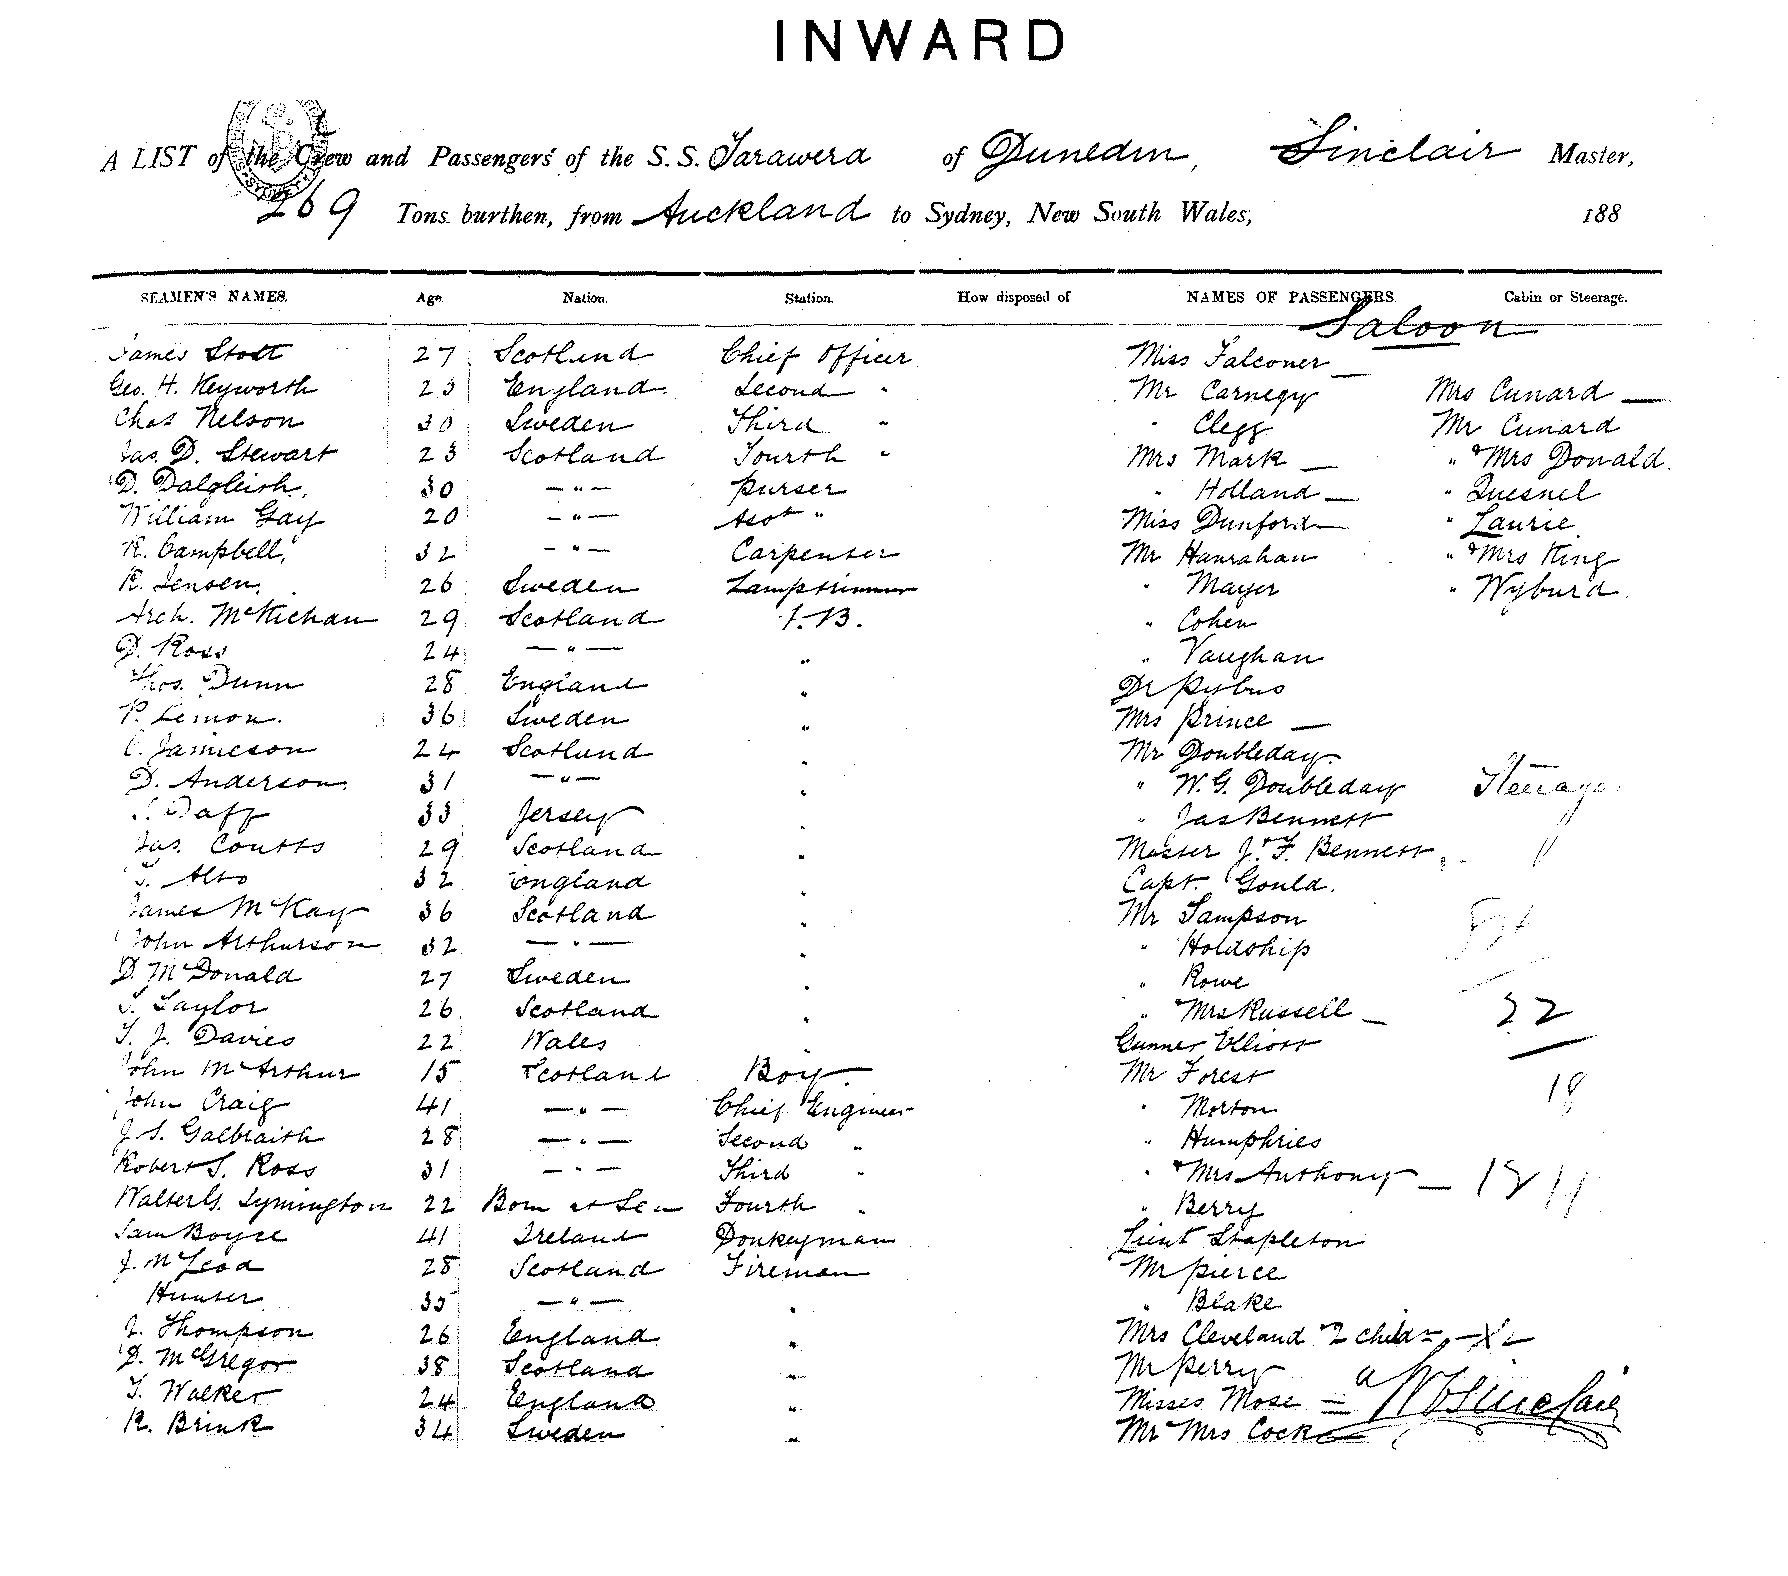 INWARD
A LIST of the Crew and Passengers of the S. S. Tarawera of Dunedin, Sinclair Master,
269 Tons burthen, from Auckland to Sydney, New South Wales, 188
SEAMEN'S NAMES. Age. Nation. Station. How disposed of NAMES OF PASSENGERS. Cabin or Steerage.
Saloon
James Stott 27 Scotland Chief Officer Miss Falconer —
Geo. H. Keyworth 23 England Second " Mr Carnegy Mrs Cunard —
Chas Nelson 30 Sweden Third " " Clegg Mr Cunard
Jas. D. Stewart 23 Scotland Fourth " Mrs Mark — " & Mrs Donald.
D. Dalgleish, 30 — " — Purser " Holland — " Quesnel
William Gay 20 — " — Asst " Miss Dunford — " Laurie
R. Campbell, 32 — " — Carpenter Mr Hanrahan " & Mrs King
R. Jensen, 26 Sweden Lamptrimmer " Mayer " Wyburd.
Arch. McKichan 29 Scotland A.B. " Cohen
D. Ross 24 — " — " " Vaughan
Thos. Dunn 28 England " Dr Pybus
P. Lemon. 36 Sweden " Mrs Prince —
C. Jamieson 24 Scotland " Mr Doubleday
D. Anderson 31 — " — " " W. G. Doubleday Steerage
Daff 33 Jersey " " Jas Bennett
Jas. Coutts 29 Scotland " Master J. F. Bennett
T. Alto 32 England " Capt. Gould.
James McKay 36 Scotland " Mr Sampson
John Arthurson 32 — " — " " Holdship
D. McDonald 27 Sweden " " Rowe
Taylor 26 Scotland " " & Mrs Russell — 22
T. J. Davies 22 Wales " Gunner Elliott
John McArthur 15 Scotland Boy. Mr Forest 18
John Craig 41 — " — Chief Engineer " Morton
J. S. Galbraith 28 — " — Second " " Humphries
Robert S. Ross 31 — " — Third " " & Mrs Anthony —
Walter G. Lymington 22 Born at Sea Fourth " " Berry
Sam Boyce 41 Ireland Donkeyman Lieut Stapleton
J. McLeod 28 Scotland Fireman Mr Pierce
Hunter 35 — " — " " Blake
J. Thompson 26 England " Mrs Cleveland & 2 childn — X —
D. McGregor 38 Scotland " Mr Perry
T. Walker 24 England " Misses Mose = Sinclair
R. Brink 34 Sweden " Mr & Mrs Cock